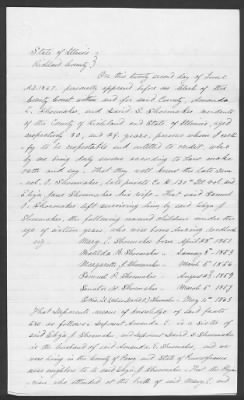 State of Illinois }
Richland County }
On this twenty second day of June
A.D. 1867. personally appeared before me Clerk of the
County Court within and for said County, Amanda
E. Shoemaker, and David S. Shoemaker residents
of the County of Richland and State of Illinois, aged
respectively 30, and 29. years, persons whom I certi-
fy to be respectable and entitled to credit, who
by me being duly sworn according to law make
oath and say. That they well knew the late Sam-
uel P. Shoemaker, late private Co. Vol. and
Eliza Jane Shoemaker his wife. That said Samuel
P. Shoemaker left surviving him by said Eliza J.
Shoemaker, the following named children under the
age of sixteen years who were born during wedlock
viz
Mary E. Shoemaker born April 1851
Matilda H. Shoemaker " January 1853
Margarette J. Shoemaker " March 1856
Samuel P. Shoemaker " August 1859
Shoemaker " March 1857
Shoemaker " May 1863
That deponents means of knowledge of said facts
are as follows: deponent Amanda E. is a sister of
said Eliza J. Shoemaker, and deponent David S. Shoemaker
is the husband of said Amanda E. Shoemaker, and we
were living in the County of and State of Pennsylvania
was neighbor to said Eliza J. Shoemaker. That the Physi-
cian who attended at the birth of said Mary E. and